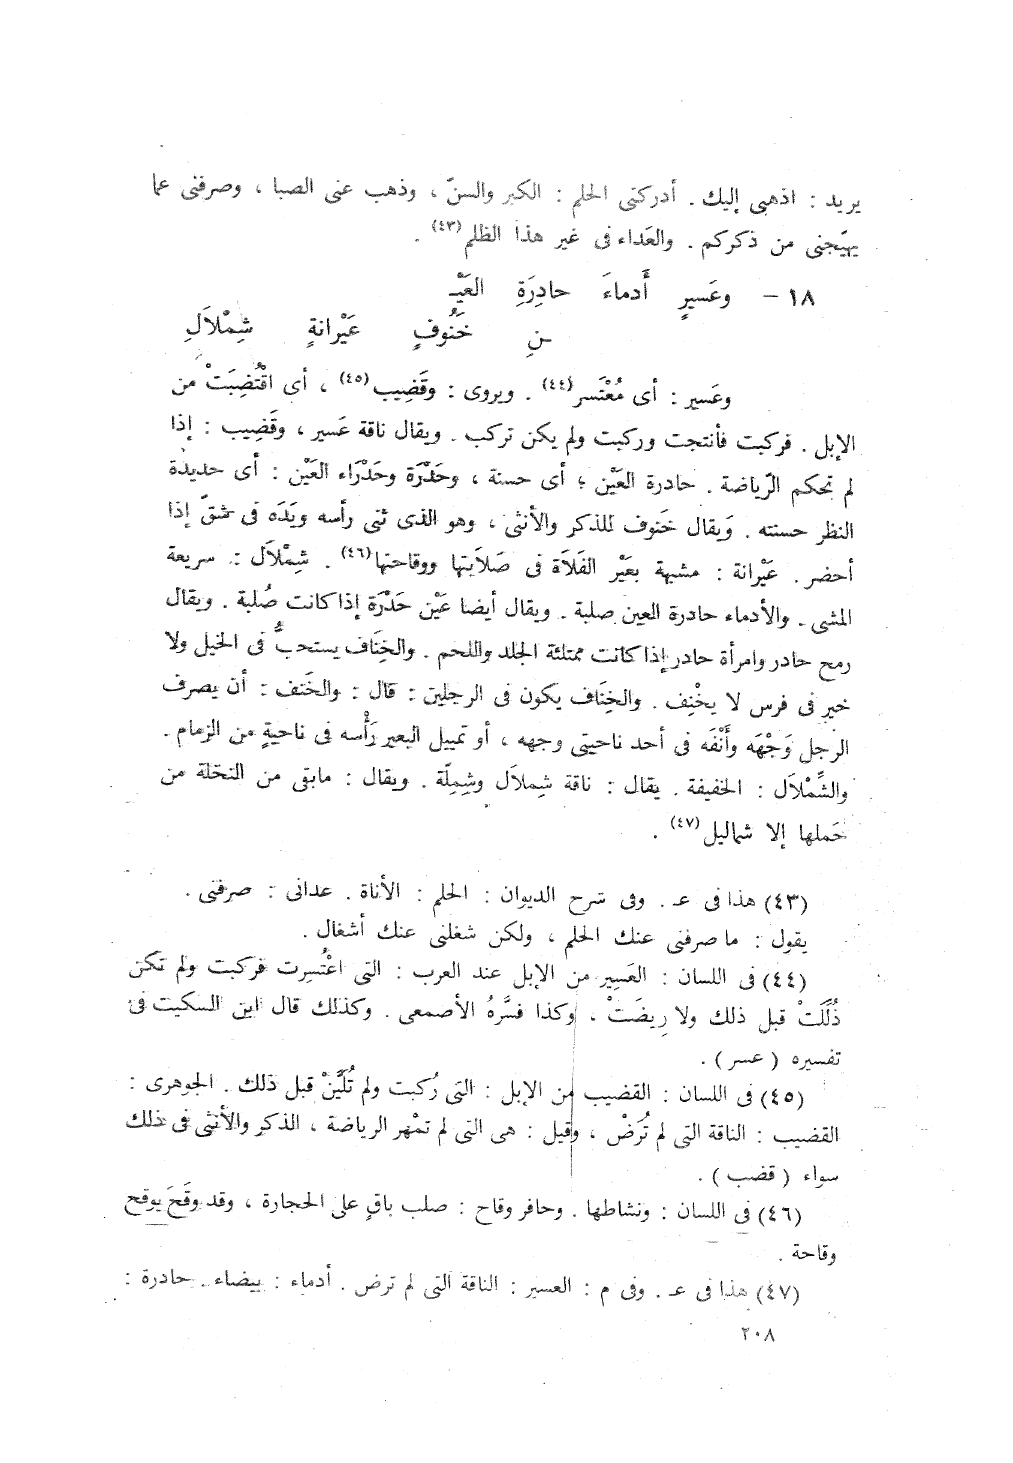 يريد : اذهبى إليك . أدركنى الحلم : الكبر والسنّ ، وذهب عنى الصبا ، وصرفنى عما
يهيّجنى من ذكركم . والعَداء فى غير هذا الظلم(٤٣) .
١٨ – وعَسيرٍ أَدماءَ حادِرَةِ العَيْـ
ـنِ خَنُوفٍ عَيْرانةٍ شِمْلاَلِ
وعَسير : أى مُعْتَسر(٤٤) . ويروى : وقَضِيب(٤٥) ، أى اقْتُضِبَتْ من
الإبل . فركبت فأنتجت وركبت ولم يكن تركب . ويقال ناقة عَسير ، وقَضِيب : إذا
لم تحكم الرّياضة . حادرة العَيْن ؛ أى حسنة ، وحَدْرَة وحَدْرَاء العَيْن : أى حديدة
النظر حسنته . وَيقال خَنوف للذكر والأنثى ، وهو الذى ثنى رأسه ويَدَه فى شقّ إذا
أحضر . عَيْرانة : مشبهة بعَيْر الفَلَاَة فى صَلَابتها ووقاحتها(٤٦) . شِمْلاَل : سريعة
المشى . والأدماء حادرة العين صلبة . ويقال أيضا عَيْن حَدْرَة إذا كانت صُلبة . ويقال
رمح حادر وامرأة حادر إذا كانت ممتلئة الجلد واللحم . والخِنَاف يستحبُّ فى الخيل ولا
خير فى فرس لا يخْنِف . والخِنَاف يكون فى الرجلين : قال : والخَنف : أن يصرف
الرجل وَجْهَه وأَنْفَه فى أحد ناحيتى وجهه ، أو تمييل البعير رَأْسه فى ناحيةٍ من الزمام .
والشِّمْلاَل : الخفيفة . يقال : ناقة شِملاَل وشِمِلّة . ويقال : مابقى من النخلة من
حَملها إلا شماليل(٤٧) .
(٤٣) هذا فى عـ . وفى شرح الديوان : الحلم : الأناة . عدانى : صرفنى .
يقول : ما صرفنى عنك الحلم ، ولكن شغلنى عنك أشغال .
(٤٤) فى اللسان : العَسِير من الإبل عند العرب : التى اعْتُسِرت فركبت ولم تكن
ذُلِّلَتْ قبل ذلك ولا رِيضَتْ ، وكذا فسَّرهُ الأصمعى . وكذلك قال ابن السكيت فى
تفسيره ( عسر ) .
(٤٥) فى اللسان : القضيب من الإبل : التى رُكبت ولم تُلَيَّنْ قبل ذلك . الجوهرى :
القضيب : الناقة التى لم تُرَضْ ، وقيل : هى التى لم تمْهر الرياضة ، الذكر والأنثى فى ذلك
سواء ( قضب ) .
(٤٦) فى اللسان : ونشاطها . وحافر وقاح : صلب باقٍ على الحجارة ، وقد وقَحَ يوقح
وقاحة .
(٤٧) هذا فى عـ . وفى م : العسير : الناقة التى لم ترض . أدماء : بيضاء . حادرة :
٢٠٨